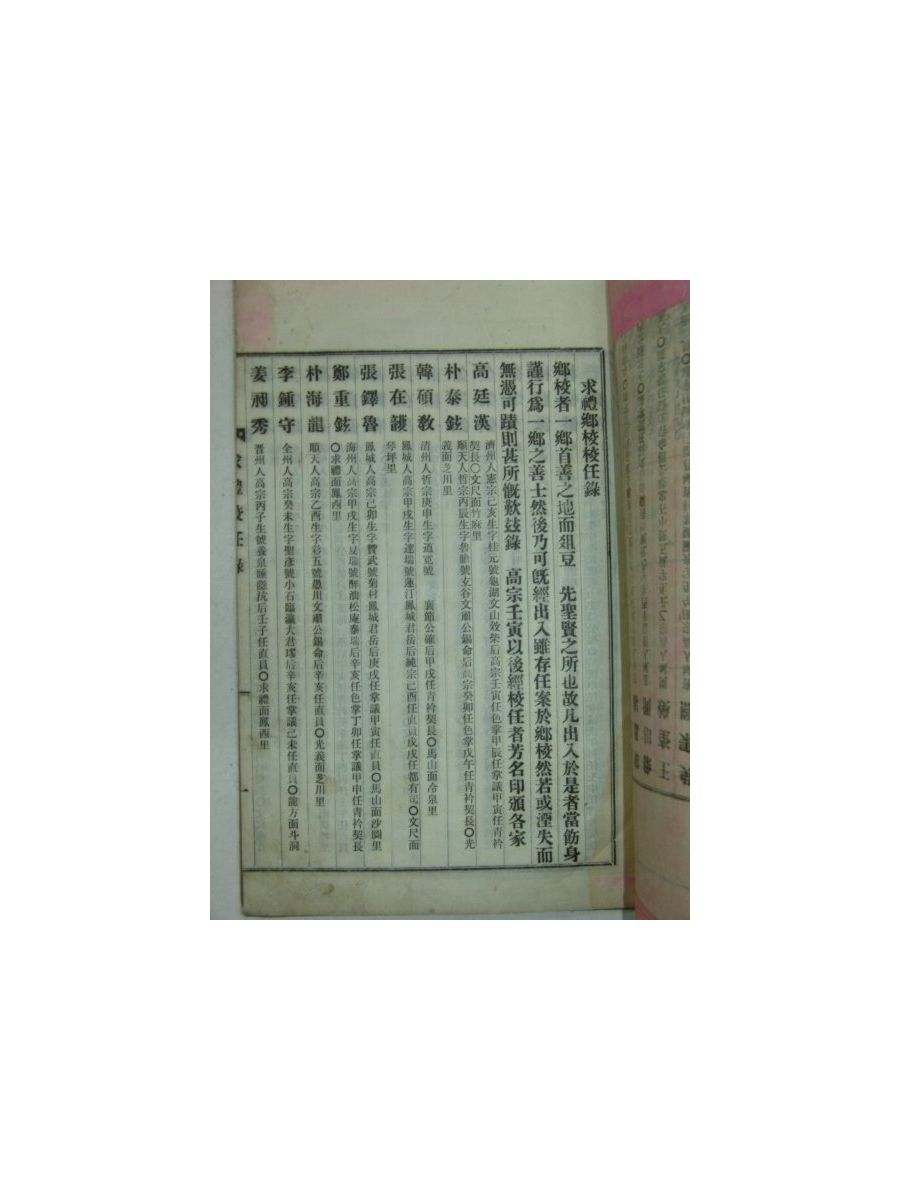 求禮鄕校校任錄
鄕校者一鄕首善之地而俎豆　先聖賢之所也故凡出入於是者當飭身
謹行爲一鄕之善士然後乃可旣經出入雖存任案於鄕校然若或湮失而
無憑可蹟則甚所慨歎玆錄　高宗壬寅以後經校任者芳名印頒各家
高廷漢　濟州人憲宗己亥生字桂元號龜湖文山效柴后高宗壬寅任色掌甲辰任掌議甲寅任靑衿
契長〇文尺面竹麻里
朴泰鉉　順天人哲宗丙辰生字魯瞻號玄谷文肅公錫命后高宗癸卯任色掌戊午任靑衿契長〇光
義面芝川里
韓碩敎　淸州人哲宗庚申生字道寬號　襄節公確后甲戌任靑衿契長〇馬山面冷泉里
張在護　鳳城人高宗甲戌生字達瑞號蓮汀鳳城君岳后純宗己酉任直員戊戌任都有司〇文尺面
琴坪里
張鐸魯　鳳城人高宗己卯生字贊武號菊村鳳城君岳后庚戌任掌議甲寅任直員〇馬山面沙圖里
鄭重鉉　海州人高宗甲戌生字 瑞號醉 松庵泰瑞后辛亥任色掌丁卯任掌議甲申任靑衿契長
〇求禮面鳳西里
朴海龍　順天人高宗乙酉生字 五號愚川文肅公錫命后辛亥任直員〇光義面芝川里
李鍾守　全州人高宗癸未生字聖彥號小石臨瀛大君璆后辛亥任掌議己未任直員〇龍方面斗洞
姜 秀　晋州人高宗丙子生號養泉 抗后壬子任直員〇求禮面鳳西里
求禮校任錄
一